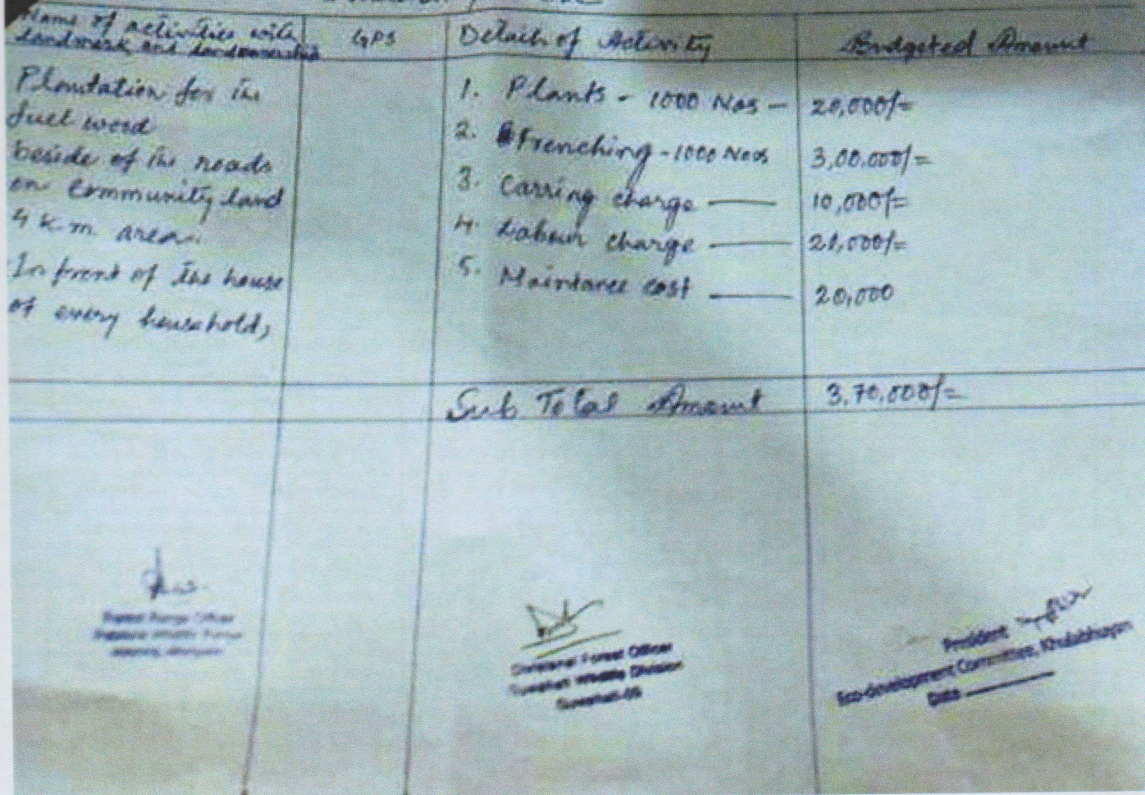 Name of activities with
landmark and landownership
GPS
Details of Activity
Budgeted Amount
Plantation for the
fuel wood
beside of the roads
on Community land
4 km area.
In front of the house
of every household,
1. Plants - 1000 Nos - 20,000/=
2. Frenching - 1000 Nos 3,00,000/=
3. Carring charge — 10,000/=
4. Labour charge — 20,000/=
5. Maintance cost — 20,000
Sub Total Amount 3,70,000/=
Forest Range Officer
Divisional Forest Officer
Guwahati Wildlife Division
Guwahati-
President
Eco-development Committee,
Date